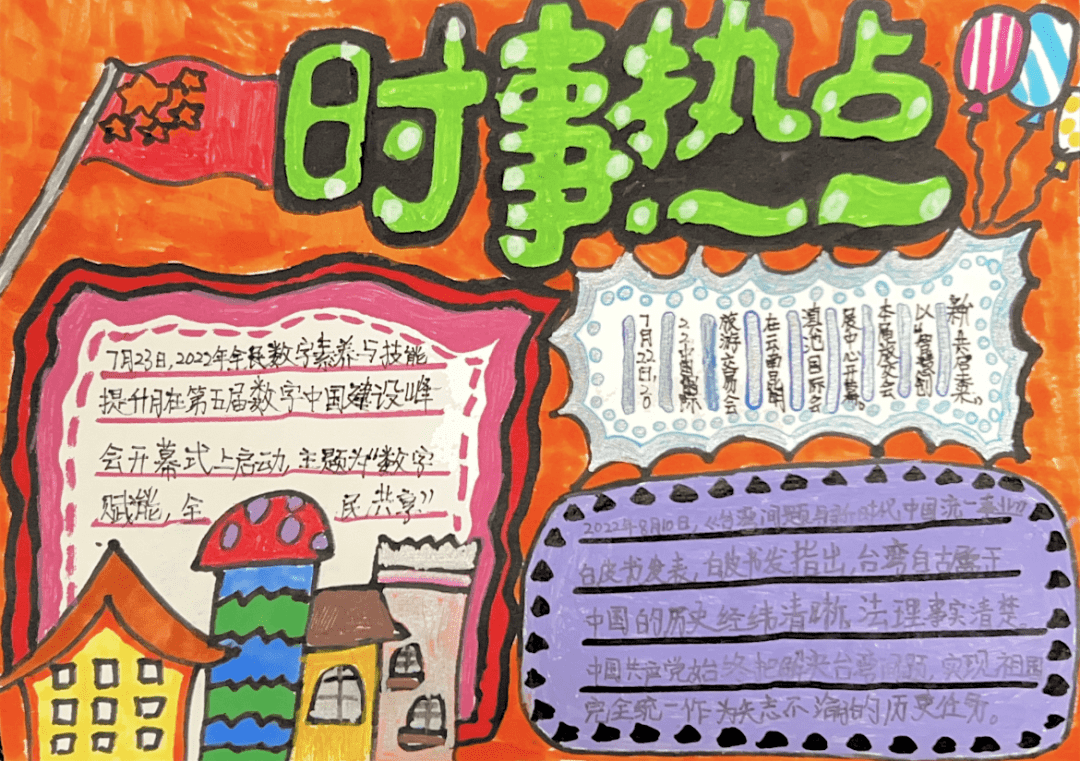 时事热点
7月23日,2022年全民数字素养与技能
提升月在第五届数字中国建设峰
会开幕式上启动,主题为“数字
赋能,全 民共享”
7月22日,20
22中国国际
旅游交易会
在云南昆明
滇池国际会
展中心开幕。
本届旅交会
以“智慧创
新 共启未来”
2022年8月10日,《台湾问题与新时代中国统一事业》
白皮书发表,白皮书发指出,台湾自古属于
中国的历史经纬清晰,法理事实清楚。
中国共产党始终把解决台湾问题,实现祖国
完全统一作为矢志不渝的历史任务。